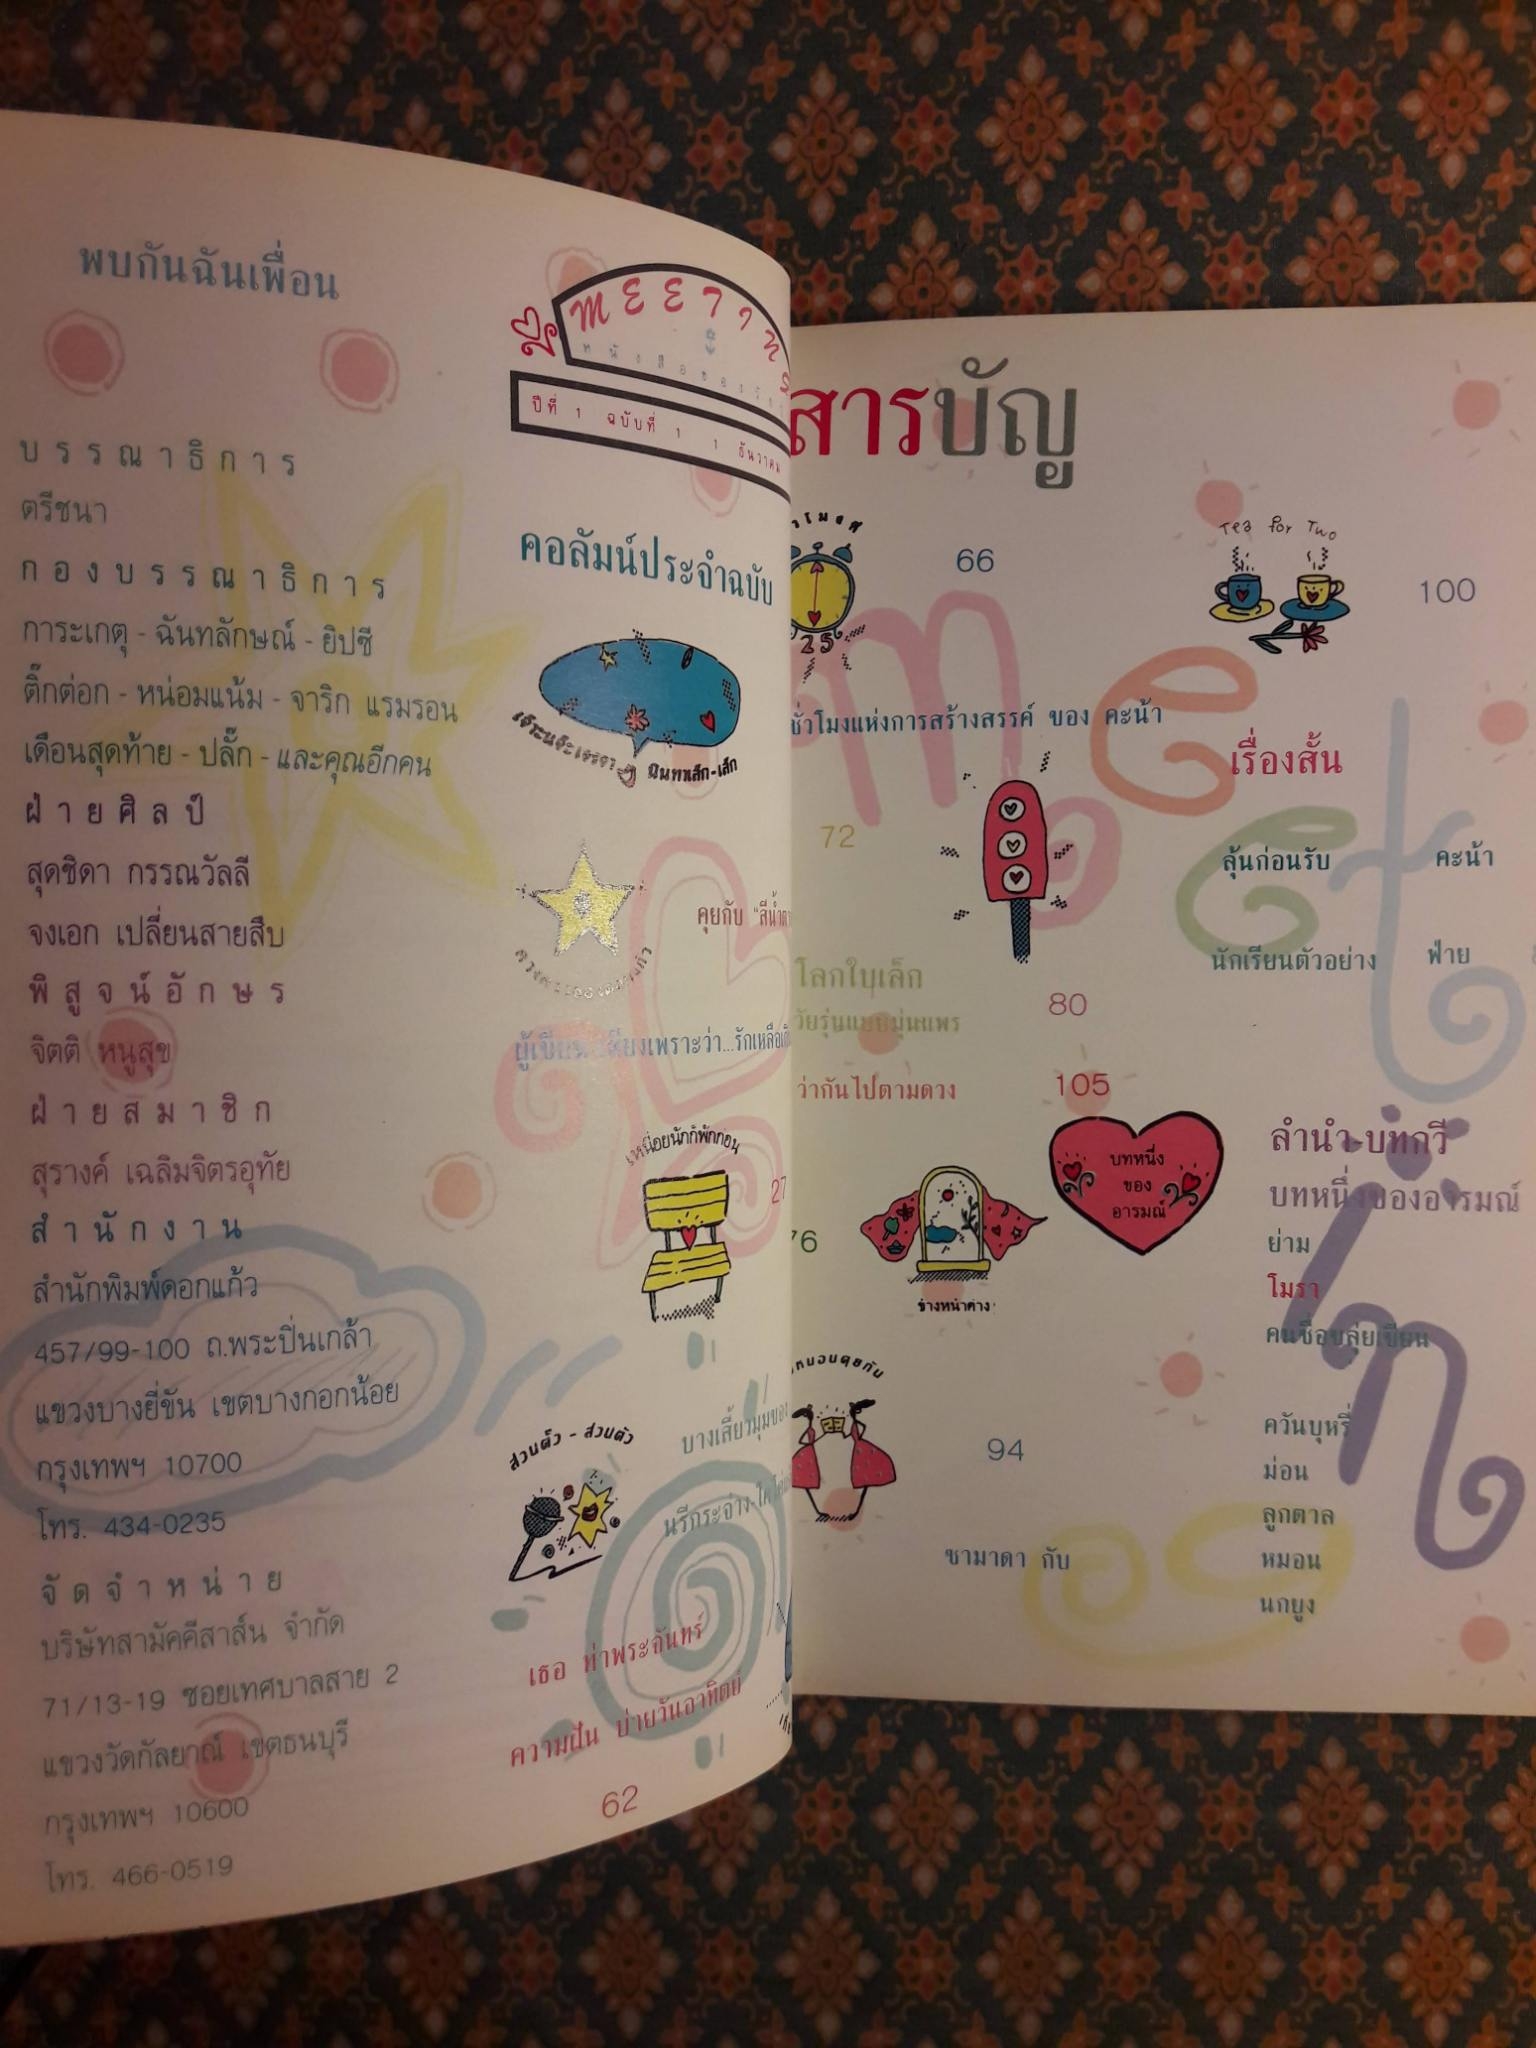 พบกันฉันเพื่อน
บรรณาธิการ
ตรีชนา
กองบรรณาธิการ
การะเกตุ - ฉันทลักษณ์ - ยิปซี
ติ๊กต่อก - หน่อมแน้ม - จาริก แรมรอน
เดือนสุดท้าย - ปลั๊ก - และคุณอีกคน
ฝ่ายศิลป์
สุดชิดา กรรณวัลลี
จงเอก เปลี่ยนสายสืบ
พิสูจน์อักษร
จิตติ หนูสุข
ฝ่ายสมาชิก
สุรางค์ เฉลิมจิตรอุทัย
สำนักงาน
สำนักพิมพ์ดอกแก้ว
457/99-100 ถ.พระปิ่นเกล้า
แขวงบางยี่ขัน เขตบางกอกน้อย
กรุงเทพฯ 10700
โทร. 434-0235
จัดจำหน่าย
บริษัทสามัคคีสาส์น จำกัด
71/13-19 ซอยเทศบาลสาย 2
แขวงวัดกัลยาณ์ เขตธนบุรี
กรุงเทพฯ 10600
โทร. 466-0519
MEETIN
หนังสือของวัย
ปีที่ 1 ฉบับที่ 1 1 ธันวาคม
คอลัมน์ประจำฉบับ
ฉันทาเล็ก-เล็ก
คุยกับ "สีน้ำ
เพราะว่า...รักเหลือ
เหนื่อยนักก็พักก่อน
27
บางเสี้ยวมุมของ
ส่วนตั๊ว - ส่วนตัว
นรีกระจ่าง
เธอ ท่าพระจันทร์
ความฝัน บ่ายวันอาทิตย์
62
สารบัญ
โมงที่
25
66
ชั่วโมงแห่งการสร้างสรรค์ ของ คะน้า
72
โลกใบเล็ก
วัยรุ่นแบบมุ่นแพร
80
ว่ากันไปตามดวง
105
76
ข้างหน้าต่าง
บทหนึ่ง
ของ
อารมณ์
หมอนคุยกับ
94
ซามาดา กับ
Tea for Two
100
เรื่องสั้น
ลุ้นก่อนรับ คะน้า
นักเรียนตัวอย่าง ฟ่าย
ลำนำ-บทกวี
บทหนึ่งของอารมณ์
ย่าม
โมรา
คนชื่อขลุ่ยเขียน
ควันบุหรี่
ม่อน
ลูกตาล
หมอน
นกยูง
meeting